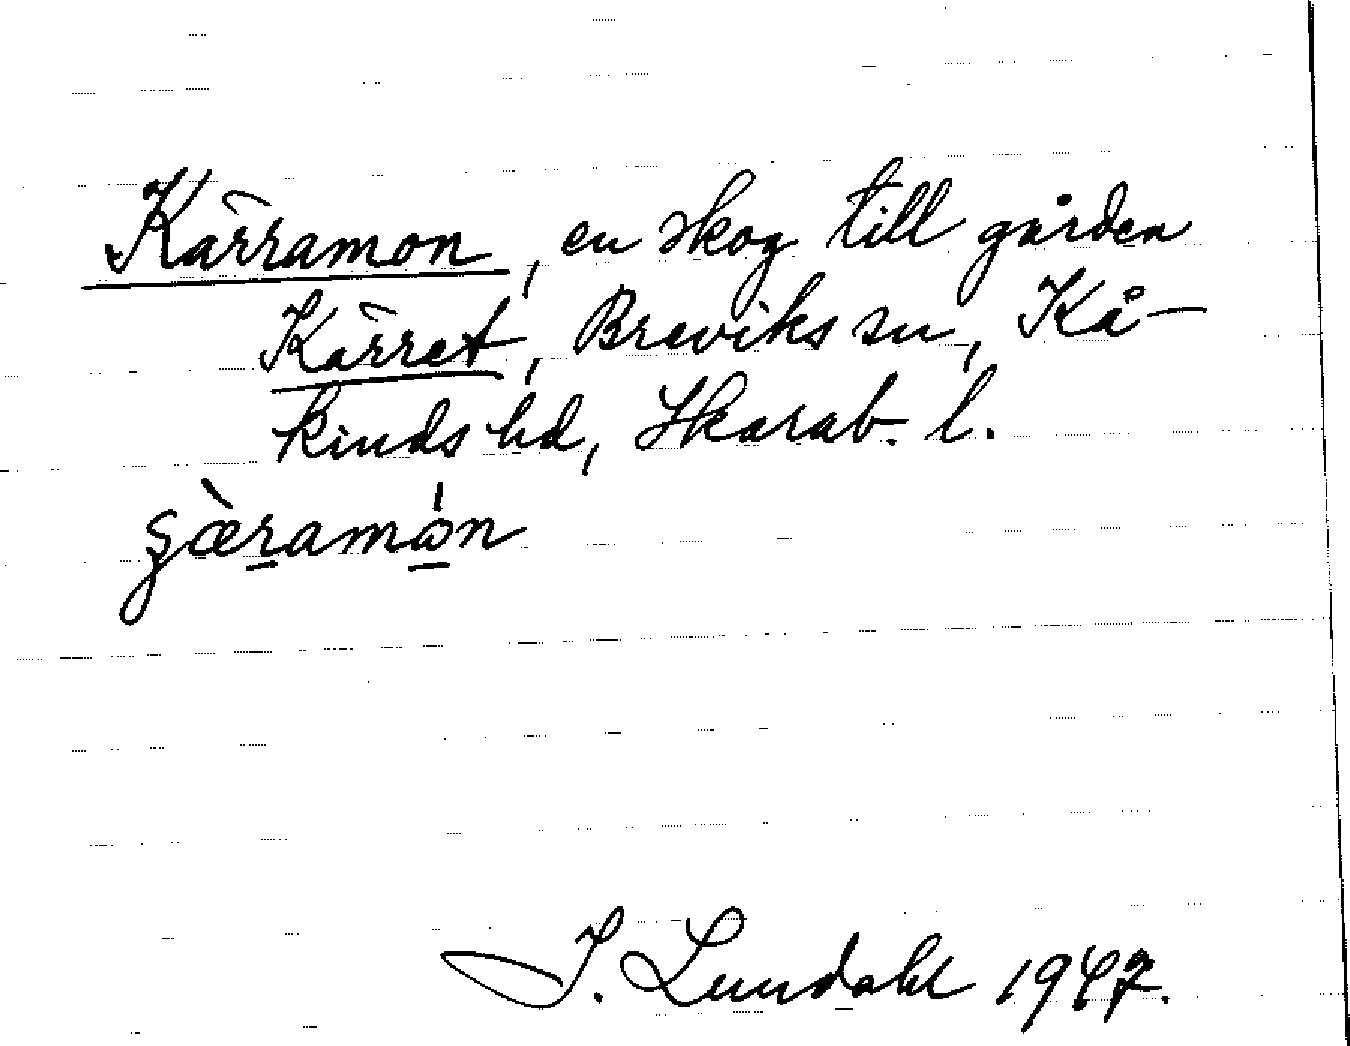 Kärramon, en skog till gården
Kärret, Breviks sn, Kå-
kinds hd, Skarab. l.
ʂæ̀ramɷ́n
I. Lundahl 1947.